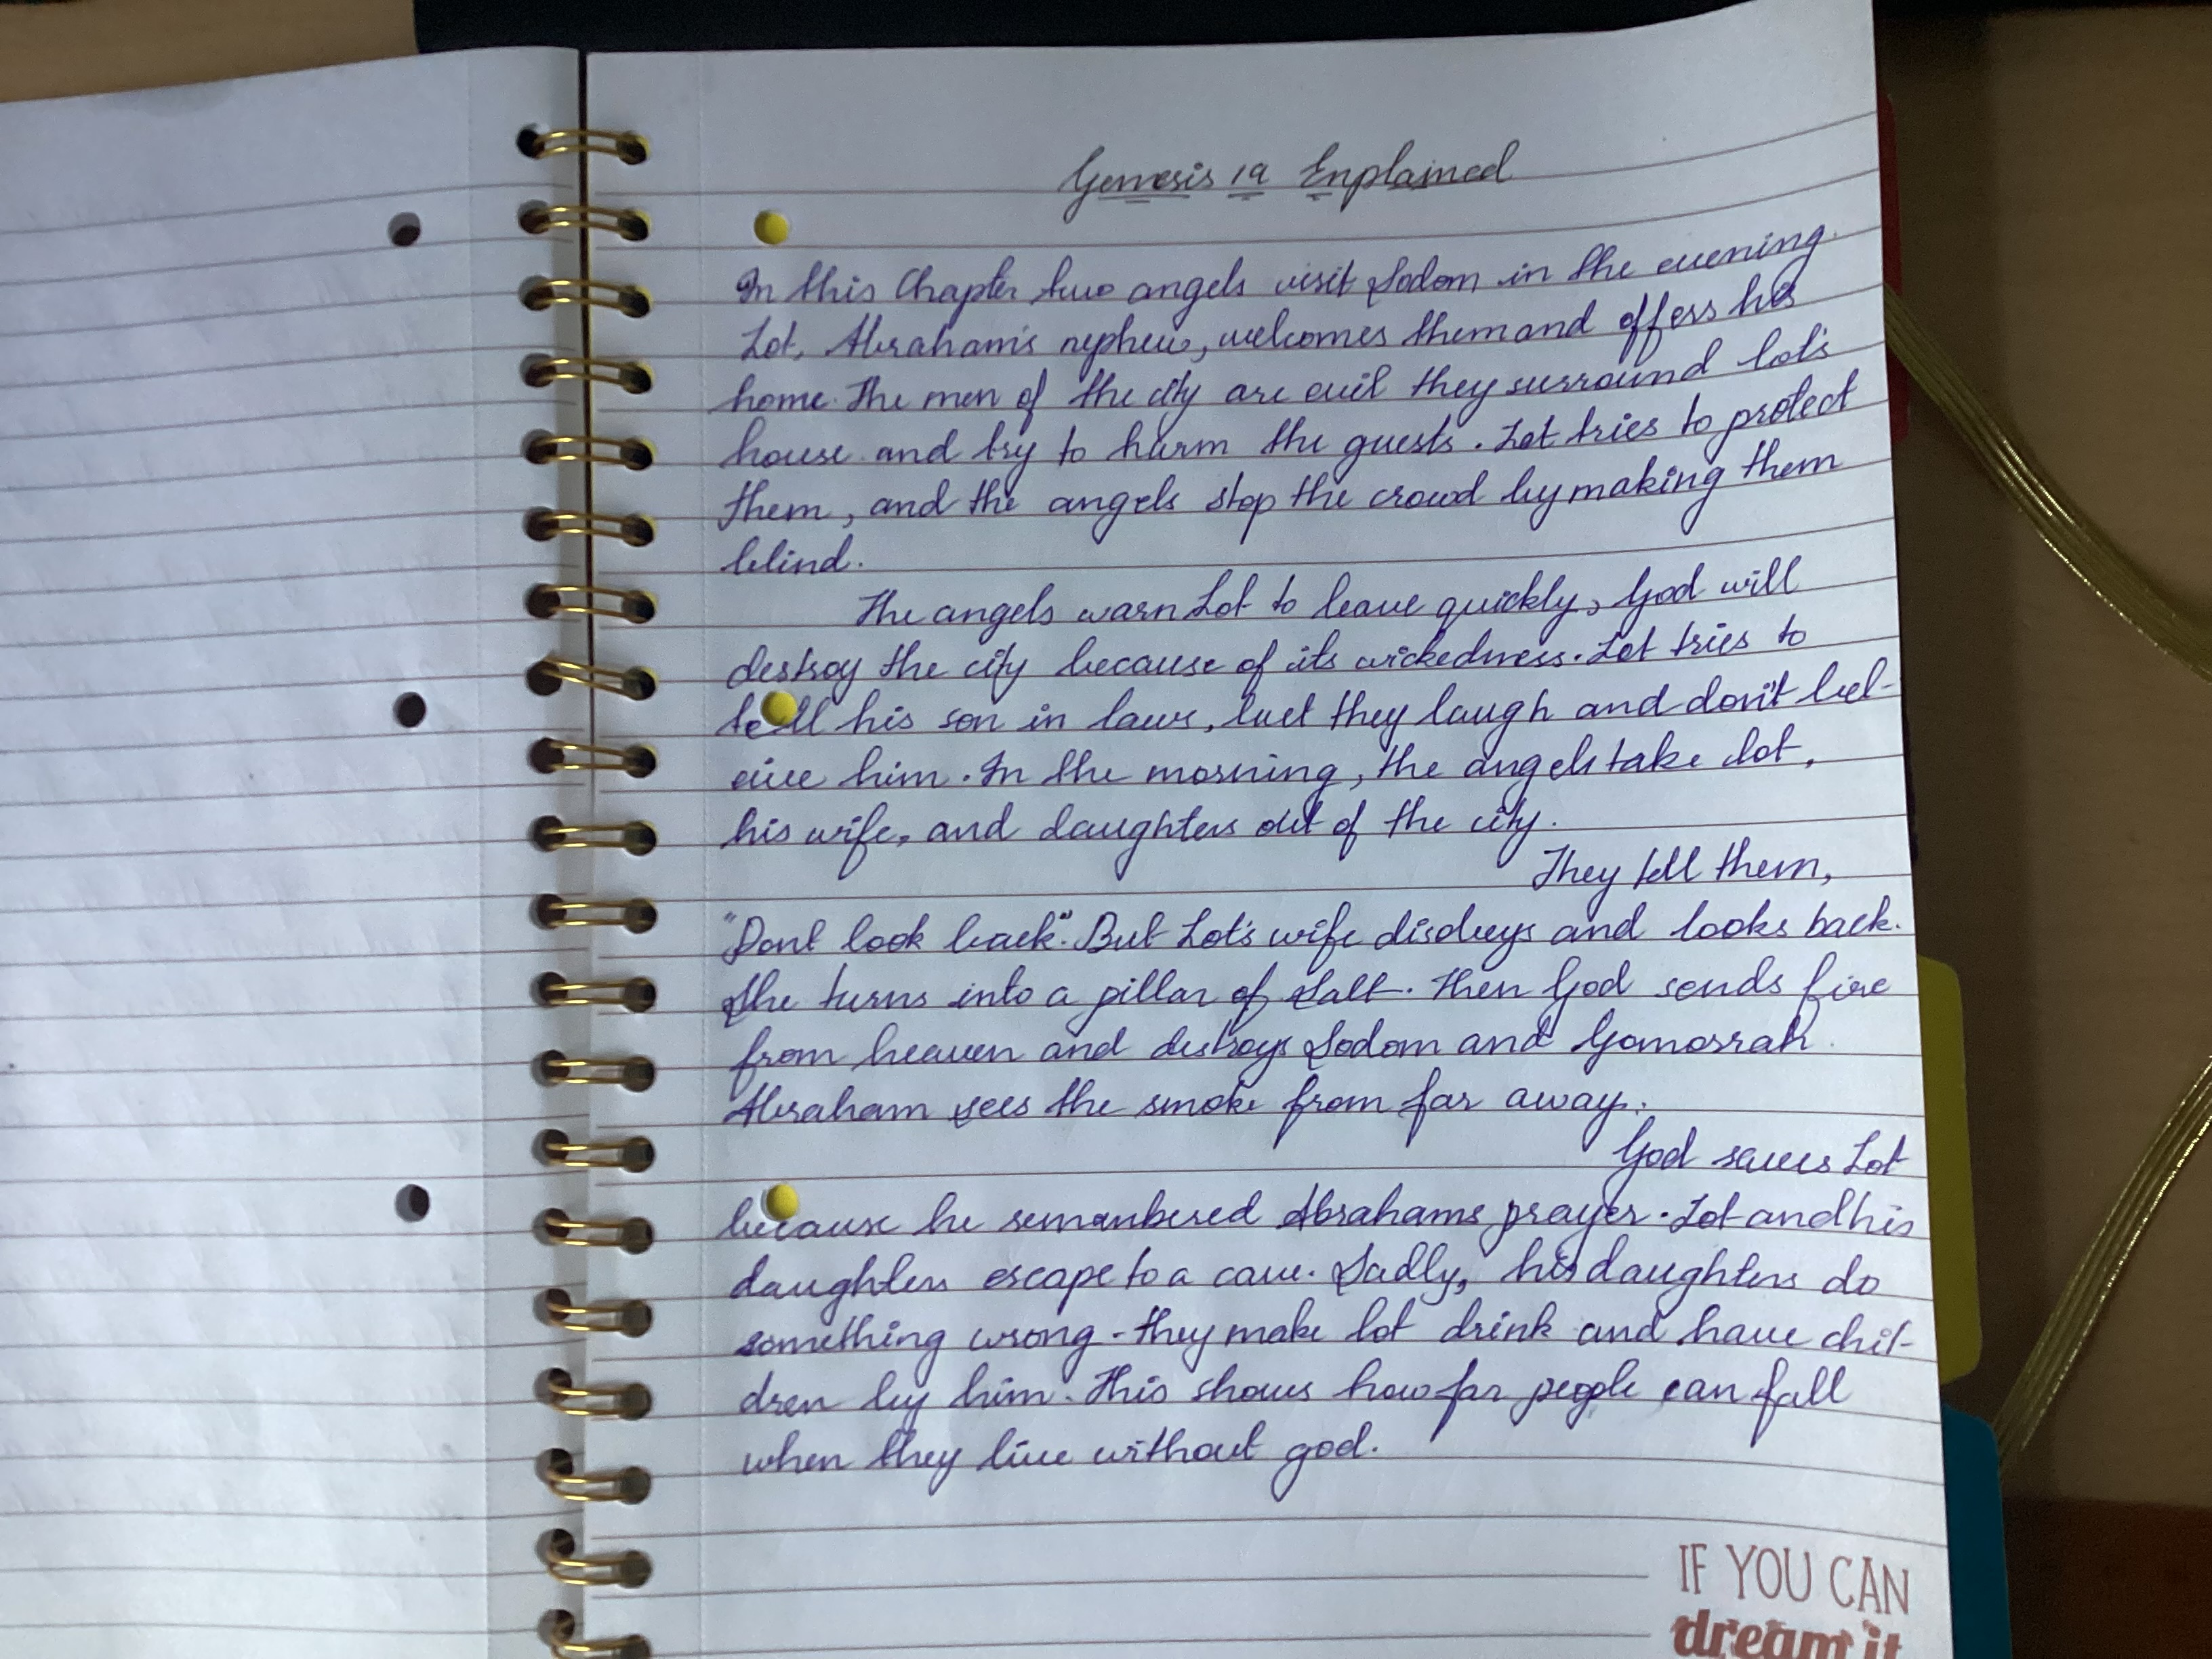 Genesis 19 Explained
In this Chapter two angels visit Sodom in the evening.
Lot, Abraham's nephew, welcomes them and offers his
home. The men of the city are evil they surround lot's
house and try to harm the guests. Lot tries to protect
them, and the angels stop the crowd by making them
blind.
The angels warn Lot to leave quickly, God will
destroy the city because of its wickedness. Lot tries to
tell his son in laws, but they laugh and don't bel-
eive him. In the morning, the angels take lot,
his wife, and daughters out of the city.
They tell them,
"Dont look back". But Lot's wife disobeys and looks back.
She turns into a pillar of Salt. Then God sends fire
from heaven and destroys Sodom and Gomorrah.
Abraham sees the smoke from far away.
God saves Lot
because he remembered Abrahams prayer. Lot and his
daughters escape to a cave. Sadly, his daughters do
something wrong - they make lot drink and have chil-
dren by him. This shows how far people can fall
when they live without god.
IF YOU CAN
dream it